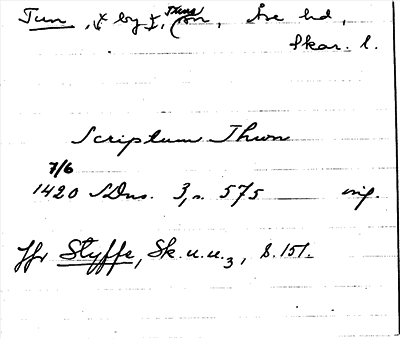 Tun, by, Åse hd,
Skar. l.
Scriptum Thwn
7/6
1420 SDns. 3, s. 575 orig.
Jfr Styffe, Sk.u.u.3, s. 151.